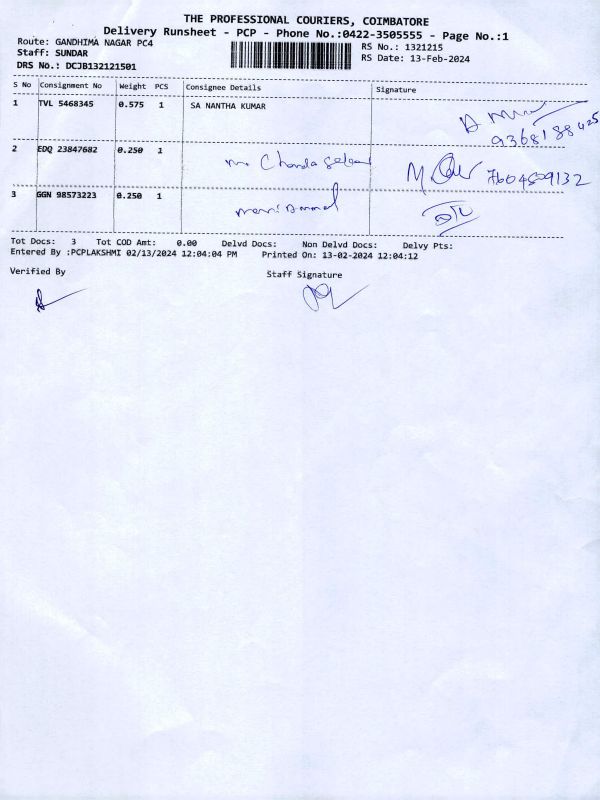 THE PROFESSIONAL COURIERS, COIMBATORE
Delivery Runsheet - PCP - Phone No.:0422-3505555 - Page No.:1
Route: GANDHIMA NAGAR PC4
Staff: SUNDAR
DRS No.: DCJB132121501
RS No.: 1321215
RS Date: 13-Feb-2024
S No Consignment No Weight PCS Consignee Details Signature
1 TVL 5468345 0.575 1 SA NANTHA KUMAR
2 EDQ 23847682 0.250 1
7604509132
3 GGN 98573223 0.250 1
Tot Docs: 3 Tot COD Amt: 0.00 Delvd Docs: Non Delvd Docs: Delvy Pts:
Entered By :PCPLAKSHMI 02/13/2024 12:04:04 PM Printed On: 13-02-2024 12:04:12
Verified By Staff Signature